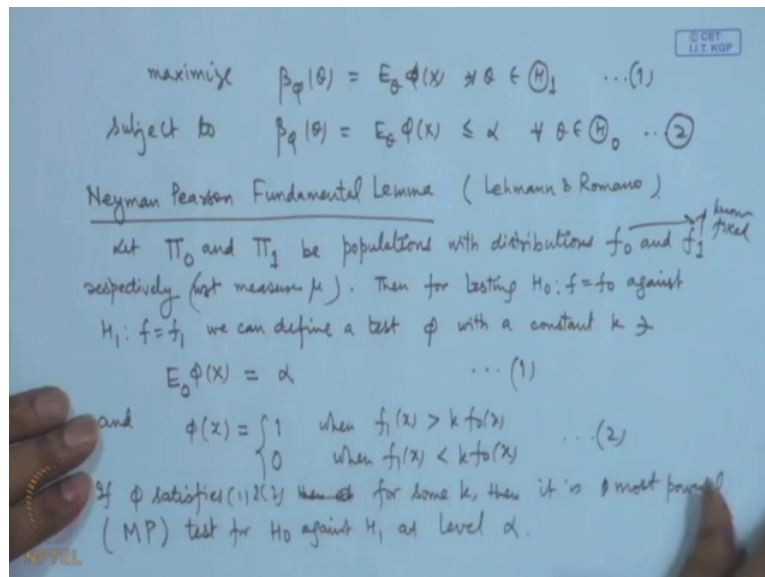 © CET
I.I.T. KGP
maximize β_φ(θ) = E_θ φ(X) ∀ θ ∈ Ⓗ_1 ...(1)
subject to β_φ(θ) = E_θ φ(X) ≤ α ∀ θ ∈ Ⓗ_0 ..②
Neyman Pearson Fundamental Lemma (Lehmann & Romano)
known
fixed
Let Π_0 and Π_1 be populations with distributions f_0 and f_1
respectively (wrt measure μ). Then for testing H_0: f = f_0 against
H_1: f = f_1 we can define a test φ with a constant k ∋
E_0 φ(X) = α ...(1)
and φ(x) = { 1 when f_1(x) > k f_0(x)
0 when f_1(x) < k f_0(x) ...(2)
If φ satisfies (1) & (2) for some k, then it is a most powerful
(MP) test for H_0 against H_1 at level α.
NPTEL